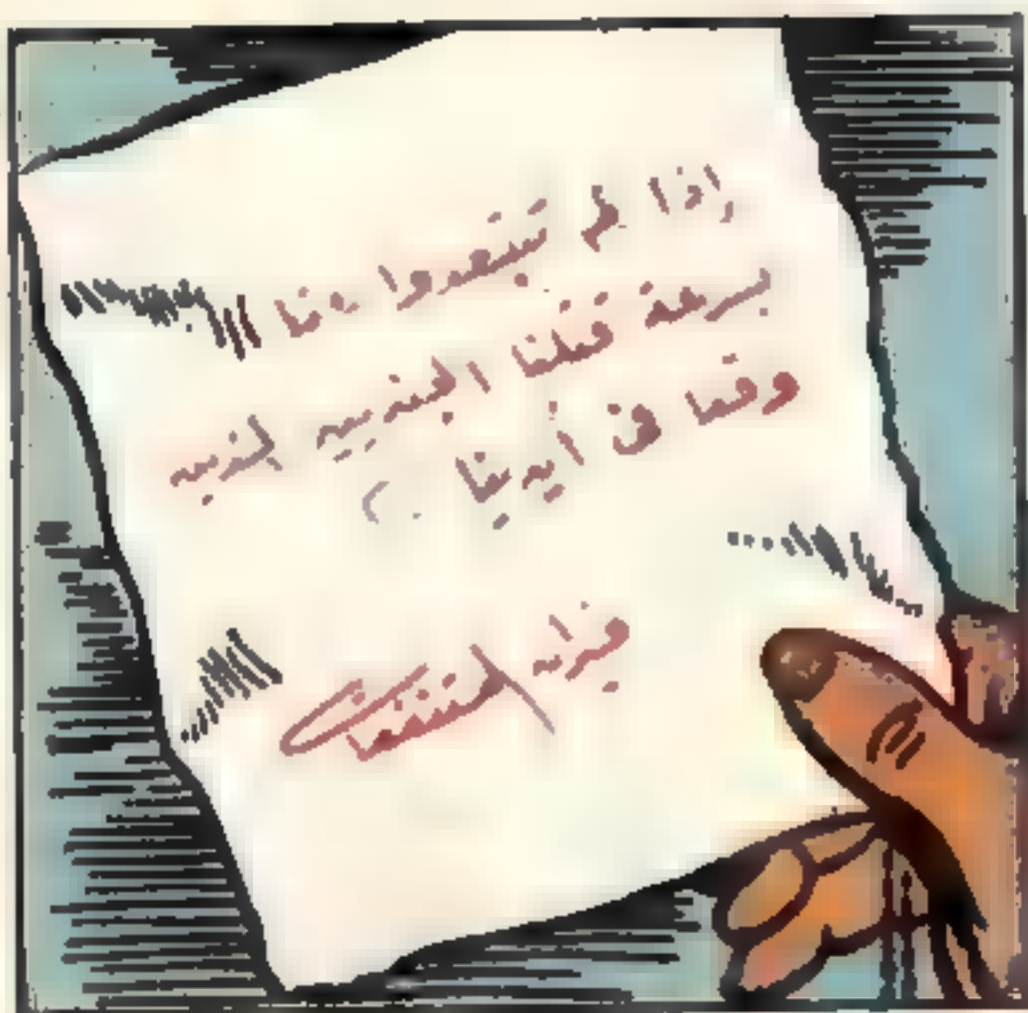 إذا لم تبتعدوا عنا
بسرعة قتلنا الجنديين لذين
وقعا في أيدينا .
فئران المستنقعات